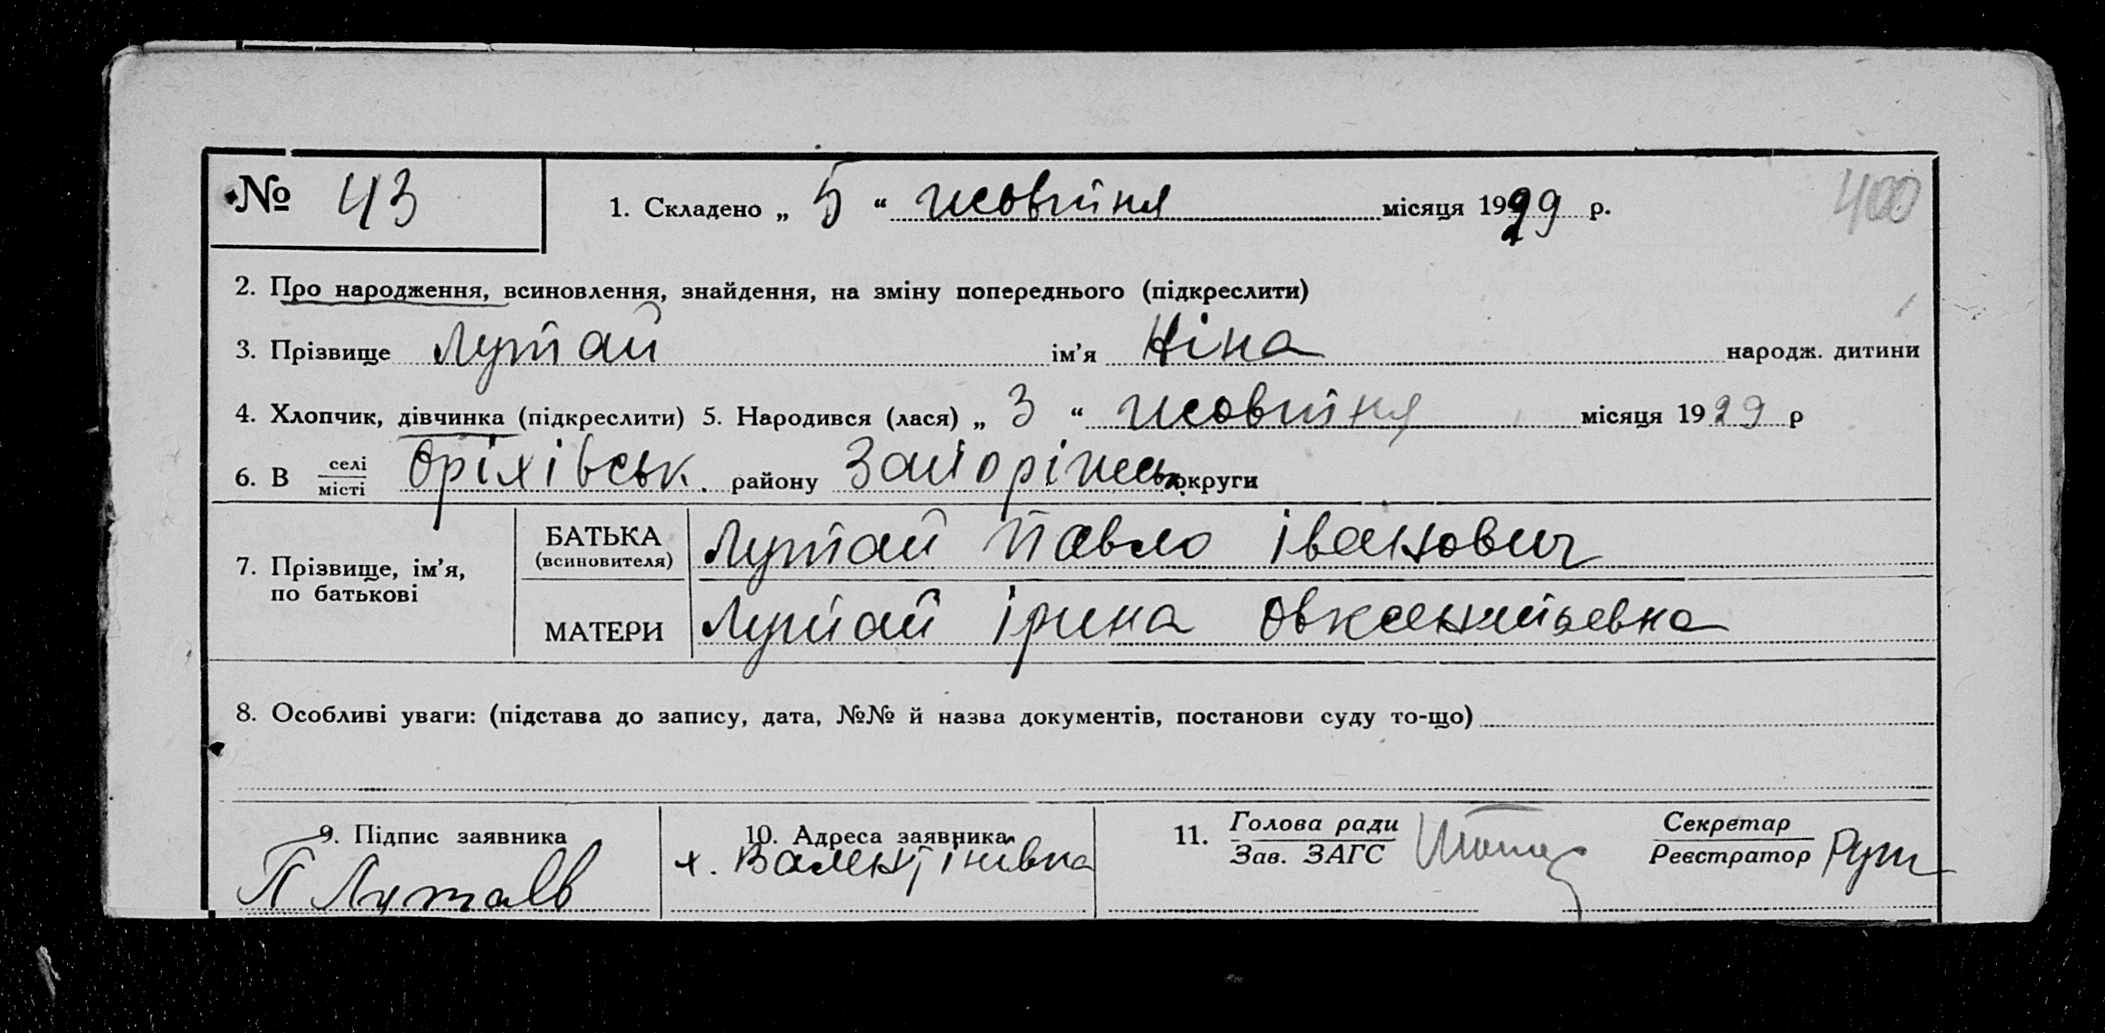 № 43 1. Складено „ 5 “ жовтня місяця 1929 р. 400
2. Про народження, всиновлення, знайдення, на зміну попереднього (підкреслити)
3. Прізвище Лутай ім’я Ніна народж. дитини
4. Хлопчик, дівчинка (підкреслити) 5. Народився (лася) „ 3 “ жовтня місяця 1929 р
6. В селі місті Оріхівськ. району Запоріжськ. округи
7. Прізвище, ім’я, по батькові
БАТЬКА (всиновителя) Лутай Павло Іванович
МАТЕРИ Лутай Ірина
8. Особливі уваги: (підстава до запису, дата, №№ й назва документів, постанови суду то-що)
9. Підпис заявника 10. Адреса заявника 11. Голова ради Зав. ЗАГС Секретар Реєстратор
П Лутай х. Валентінівка